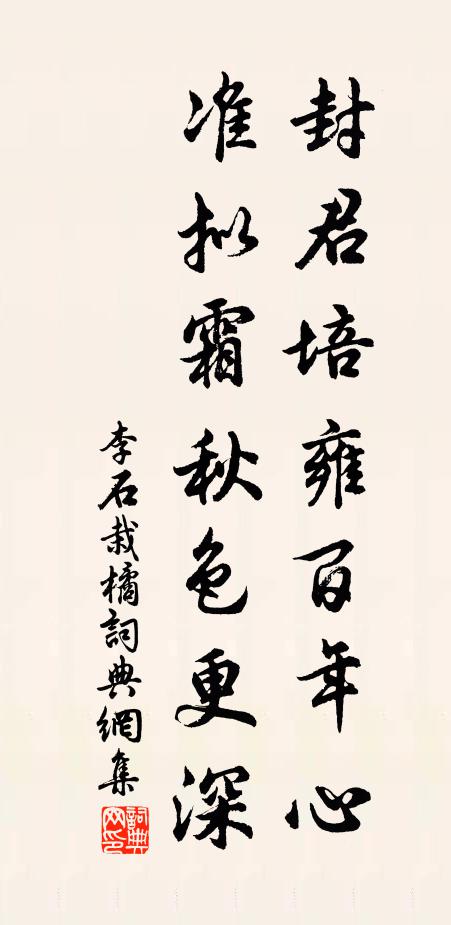 封君培雍百年心
准拟霜秋色更深
李石栽橘詞典網集
詞典网印